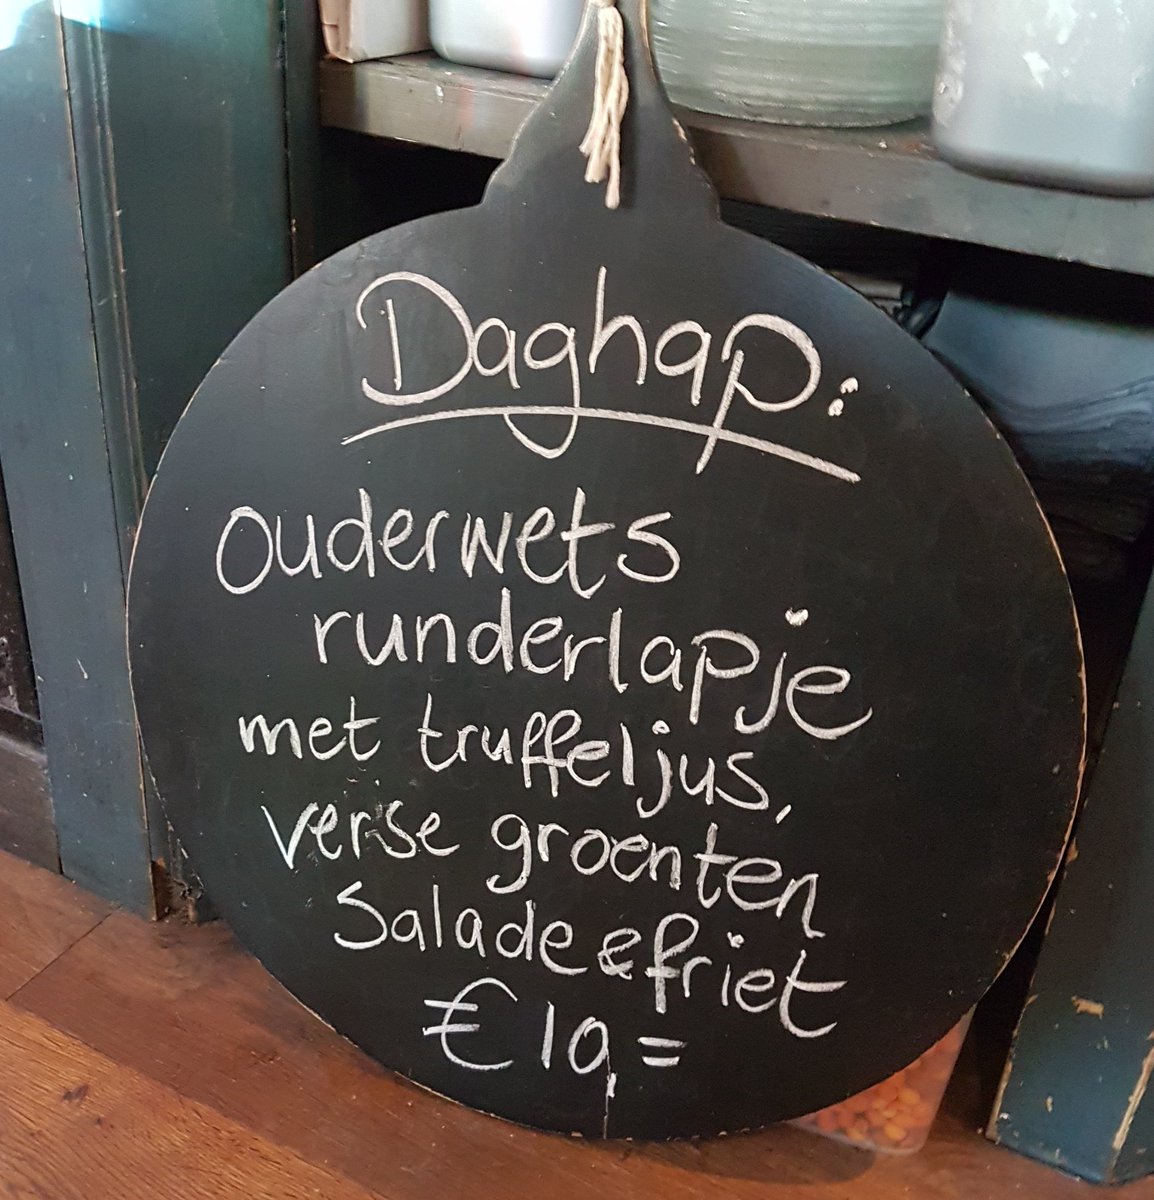 Daghap:
Ouderwets
runderlapje
met truffeljus,
verse groenten
Salade & friet
€ 19,=